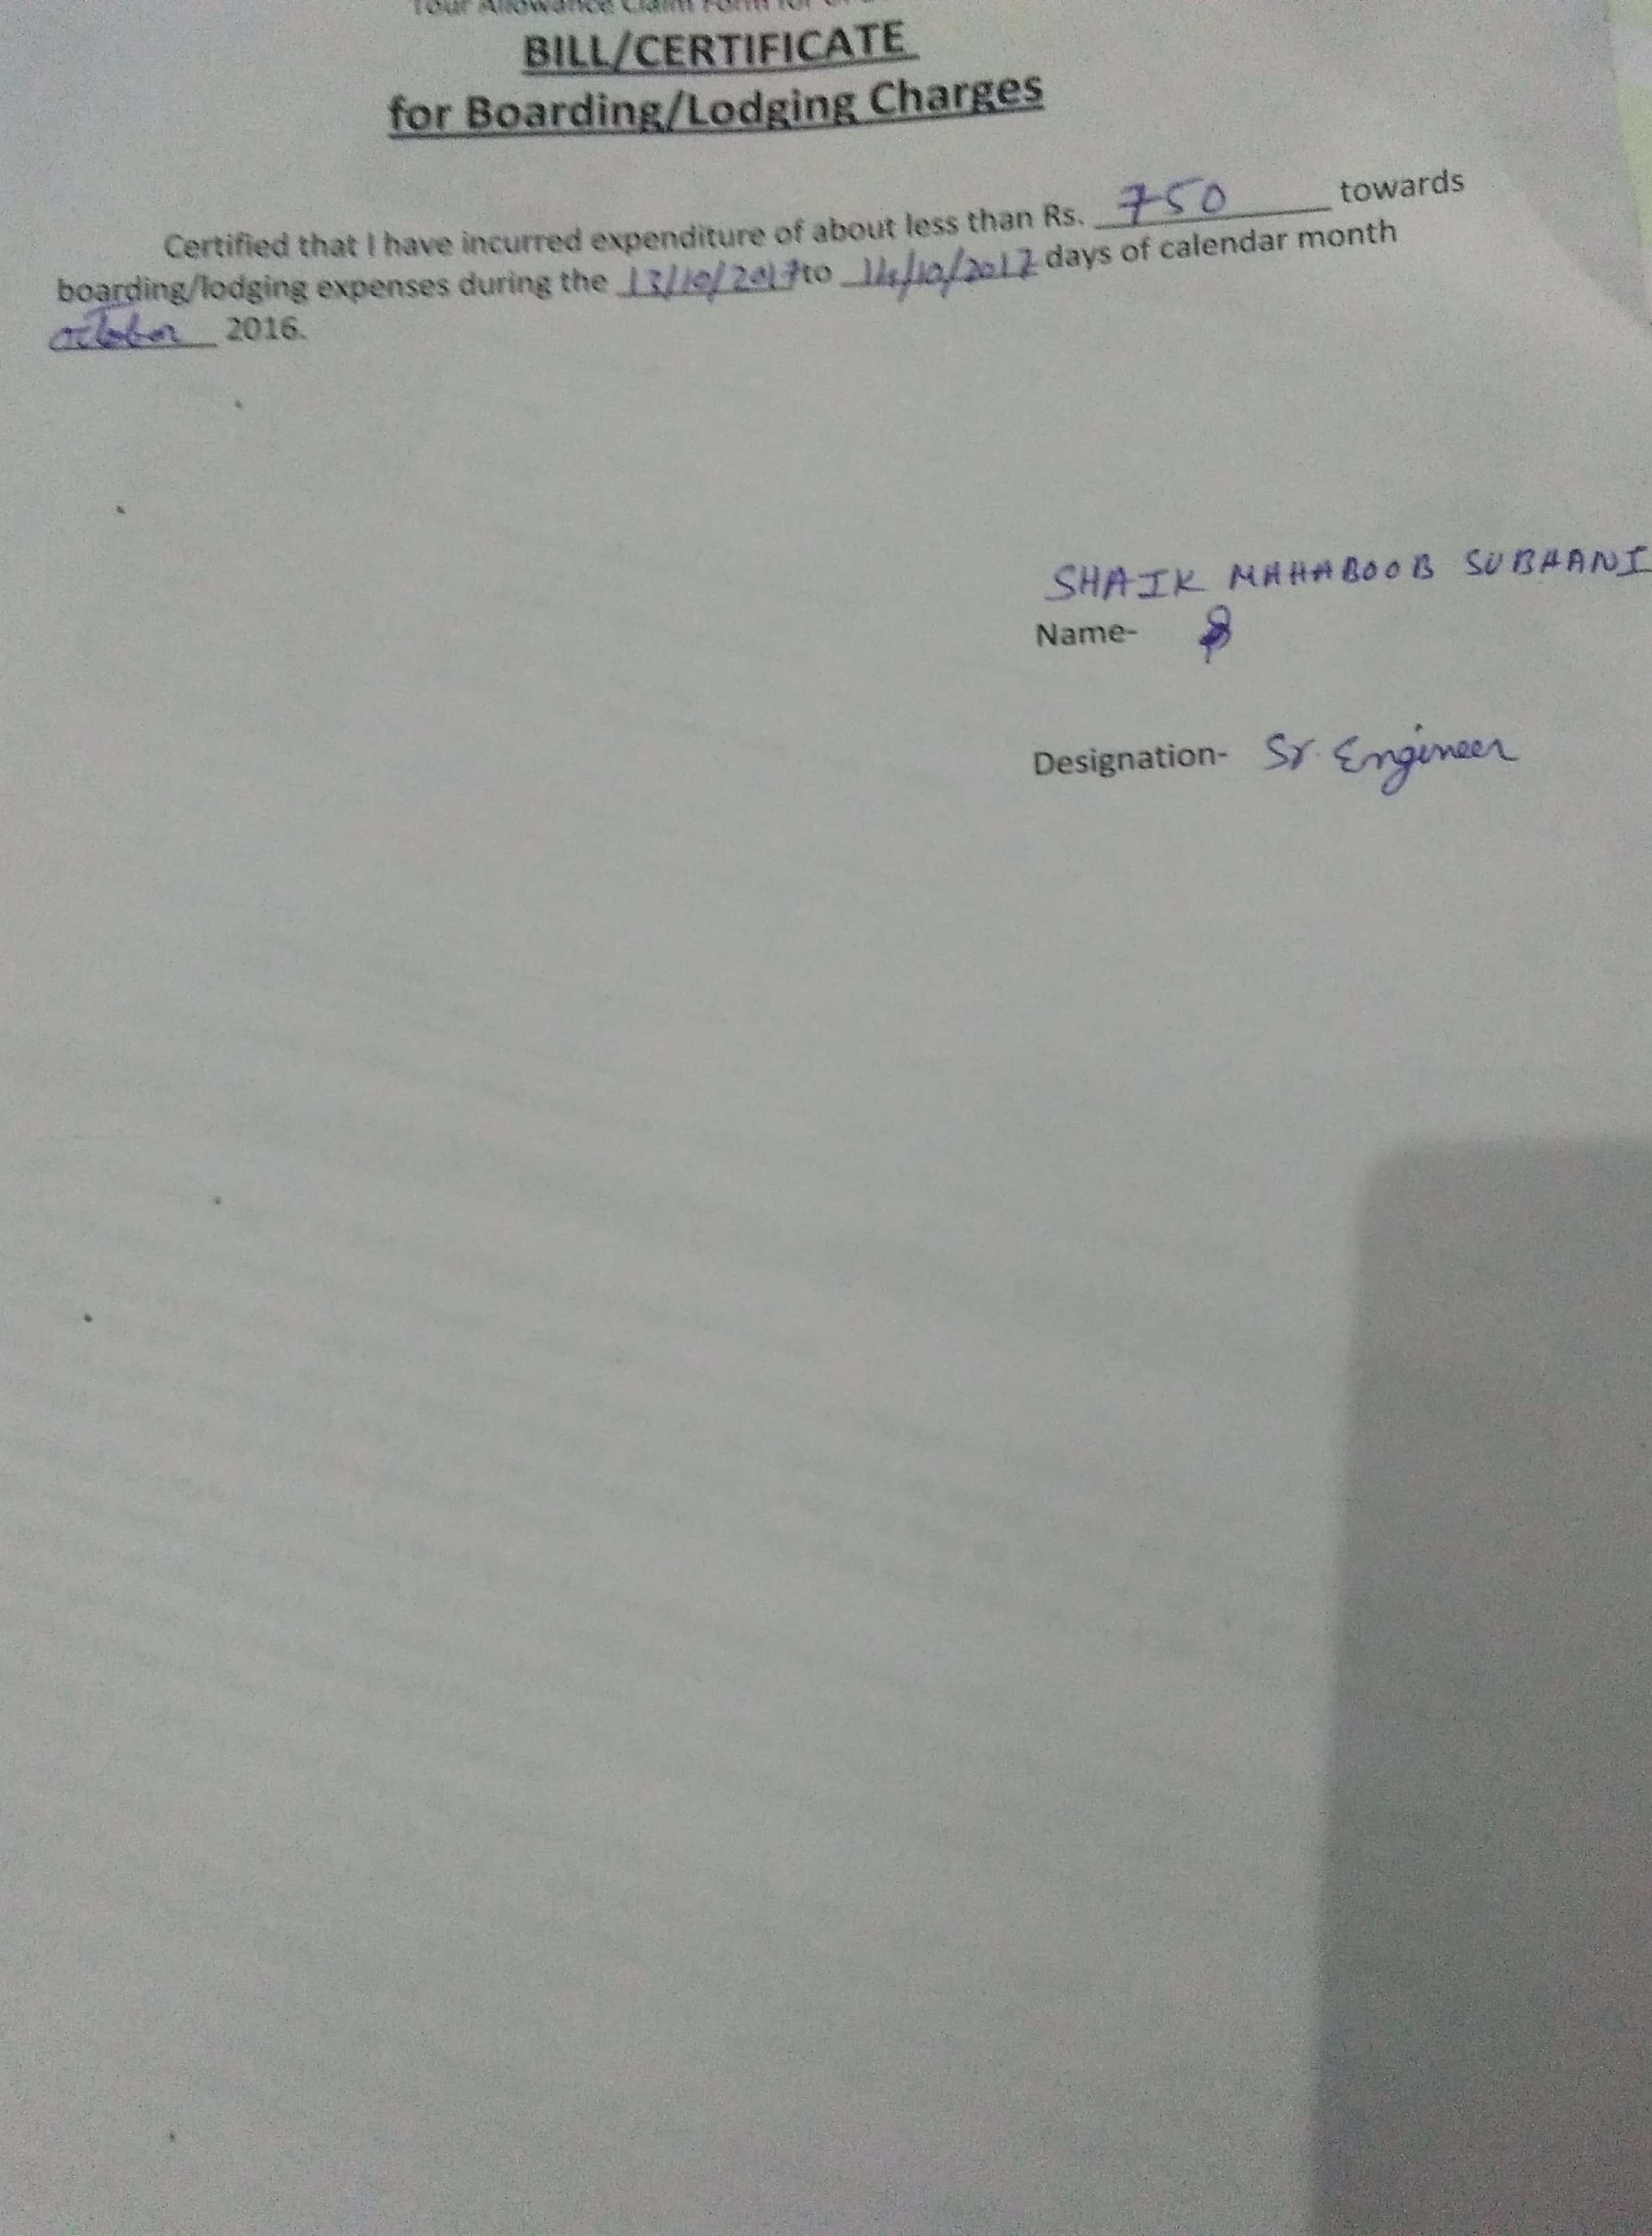 Tour Allowance Claim Form for
BILL/CERTIFICATE
for Boarding/Lodging Charges
Certified that I have incurred expenditure of about less than Rs. 750 towards
boarding/lodging expenses during the 13/10/2017 to 14/10/2017 days of calendar month
October 2016.
SHAIK MAHABOOB SUBHANI
Name-
Designation- Sr. Engineer